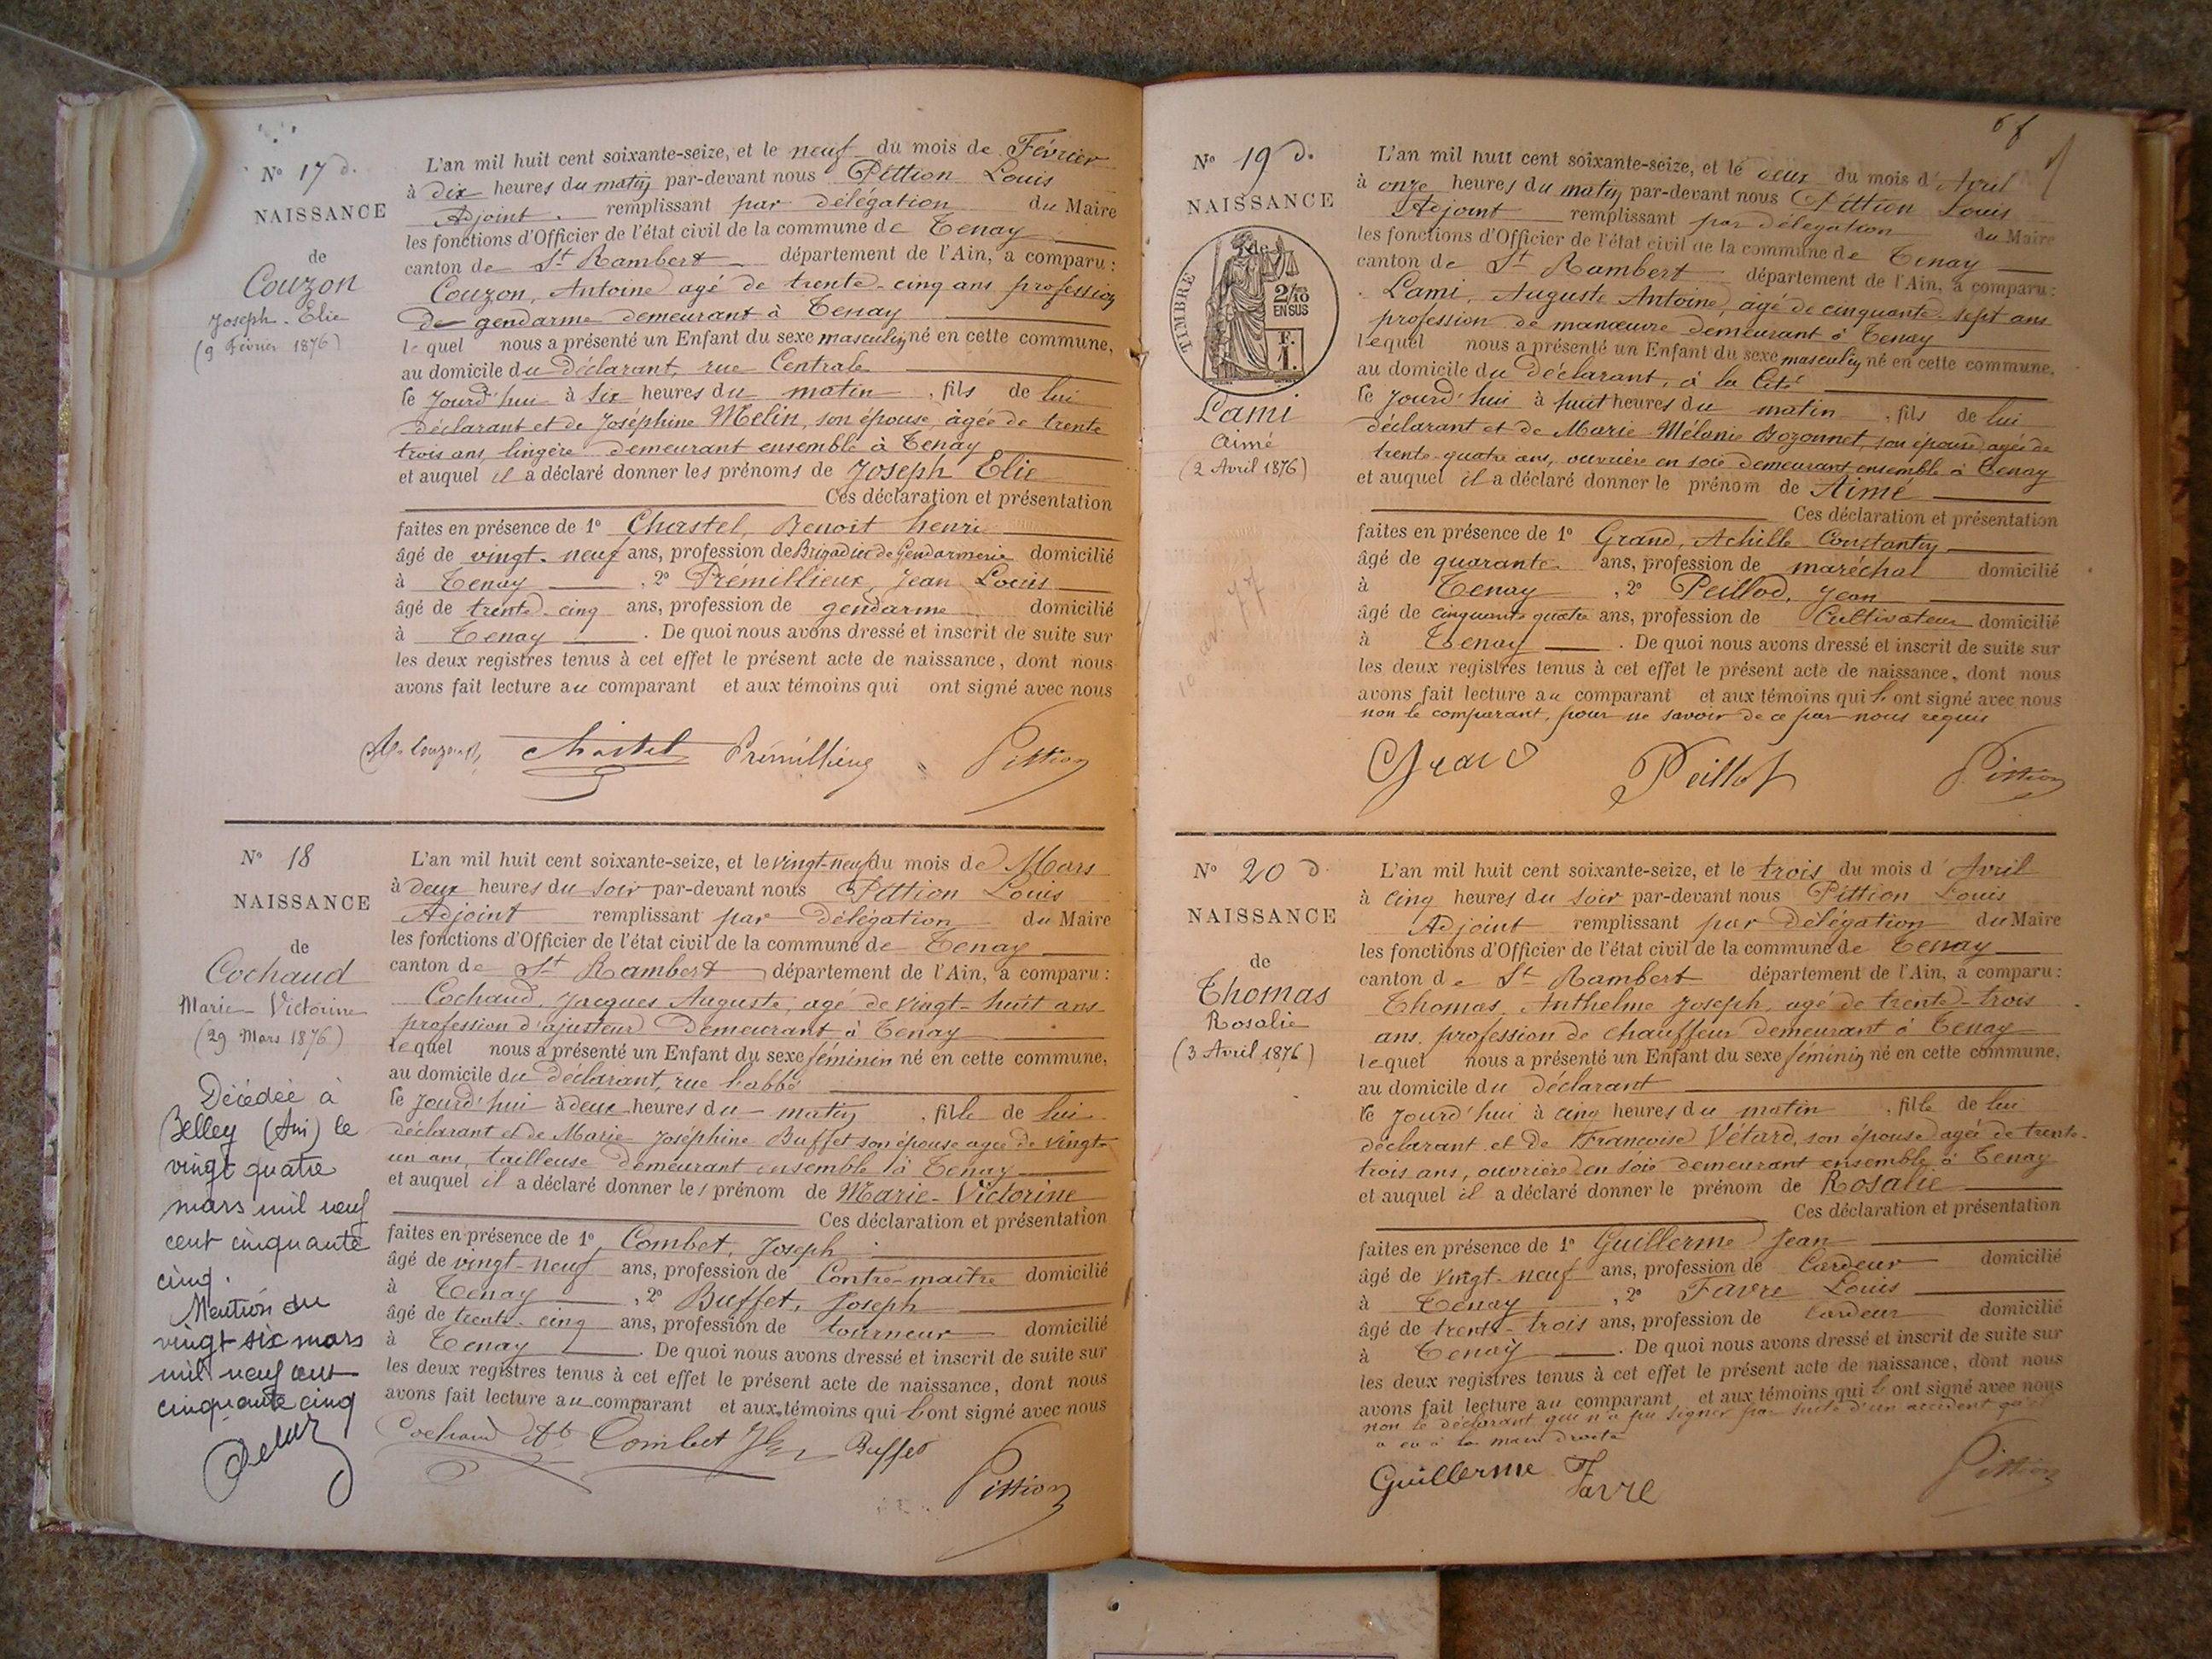 N° 17 d.
NAISSANCE
de
Couzon
Joseph-Elie
(9 Février 1876)
L'an mil huit cent soixante-seize, et le neuf du mois de Février
à dix heures du matin par-devant nous Pittion Louis
Adjoint remplissant par délégation du Maire
les fonctions d'Officier de l'état civil de la commune de Tenay
canton de St Rambert département de l'Ain, a comparu :
Couzon, Antoine agé de trente-cinq ans profession
de gendarme demeurant à Tenay
lequel nous a présenté un Enfant du sexe masculin né en cette commune,
au domicile du déclarant, rue Centrale
le jourd'hui à six heures du matin, fils de lui
déclarant et de Joséphine Melin, son épouse, agée de trente
trois ans, lingère demeurant ensemble à Tenay
et auquel il a déclaré donner les prénoms de Joseph Elie
Ces déclaration et présentation
faites en présence de 1° Chastel, Benoit henri
âgé de vingt-neuf ans, profession de Brigadier de Gendarmerie domicilié
à Tenay, 2° Prémillieux, Jean Louis
âgé de trente-cinq ans, profession de gendarme domicilié
à Tenay. De quoi nous avons dressé et inscrit de suite sur
les deux registres tenus à cet effet le présent acte de naissance, dont nous
avons fait lecture au comparant et aux témoins qui ont signé avec nous
Chastel Prémillieux Pittion
N° 18
NAISSANCE
de
Cochaud
Marie-Victorine
(29 Mars 1876)
Décédée à
Belley (Ain) le
vingt quatre
mars mil neuf
cent cinquante
cinq.
Mention du
vingt six mars
mil neuf cent
cinquante cinq
L'an mil huit cent soixante-seize, et le vingt-neuf du mois de Mars
à deux heures du soir par-devant nous Pittion Louis
Adjoint remplissant par délégation du Maire
les fonctions d'Officier de l'état civil de la commune de Tenay
canton de St Rambert département de l'Ain, a comparu :
Cochaud, Jacques Auguste, agé de vingt-huit ans
profession d'ajusteur demeurant à Tenay
lequel nous a présenté un Enfant du sexe féminin né en cette commune,
au domicile du déclarant, rue l'abbé
le jourd'hui à deux heures du matin, fille de lui
déclarant et de Marie Joséphine Buffet son épouse agée de vingt-
un ans, tailleuse demeurant ensemble à Tenay
et auquel il a déclaré donner les prénom de Marie-Victorine
Ces déclaration et présentation
faites en présence de 1° Combet, Joseph
âgé de vingt-neuf ans, profession de Contre-maitre domicilié
à Tenay, 2° Buffet, Joseph
âgé de trente-cinq ans, profession de tourneur domicilié
à Tenay. De quoi nous avons dressé et inscrit de suite sur
les deux registres tenus à cet effet le présent acte de naissance, dont nous
avons fait lecture au comparant et aux témoins qui ont signé avec nous
Cochaud Combet Buffet
Pittion
N° 19 d.
NAISSANCE
de
TIMBRE
2/10
EN SUS
F.
1.
Lami
Aimé
(2 Avril 1876)
L'an mil huit cent soixante-seize, et le deux du mois d'Avril
à onze heures du matin par-devant nous Pittion Louis
Adjoint remplissant par délégation du Maire
les fonctions d'Officier de l'état civil de la commune de Tenay
canton de St Rambert département de l'Ain, a comparu :
Lami, Auguste Antoine, agé de cinquante-sept ans
profession de manœuvre demeurant à Tenay
lequel nous a présenté un Enfant du sexe masculin né en cette commune,
au domicile du déclarant, à la Cité
le jourd'hui à huit heures du matin, fils de lui
déclarant et de Marie Mélanie Bozonnet, son épouse, agée de
trente-quatre ans, ouvrière en soie demeurant ensemble à Tenay
et auquel il a déclaré donner le prénom de Aimé
Ces déclaration et présentation
faites en présence de 1° Grand, Achille Constantin
âgé de quarante ans, profession de maréchal domicilié
à Tenay, 2° Peillod, Jean
âgé de cinquante quatre ans, profession de Cultivateur domicilié
à Tenay. De quoi nous avons dressé et inscrit de suite sur
les deux registres tenus à cet effet le présent acte de naissance, dont nous
avons fait lecture au comparant et aux témoins qui ont signé avec nous
non le comparant, pour ne savoir de ce par nous requis
Grand Peillod Pittion
N° 20 d.
NAISSANCE
de
Thomas
Rosalie
(3 Avril 1876)
L'an mil huit cent soixante-seize, et le trois du mois d'Avril
à cinq heures du soir par-devant nous Pittion Louis
Adjoint remplissant par délégation du Maire
les fonctions d'Officier de l'état civil de la commune de Tenay
canton de St Rambert département de l'Ain, a comparu :
Thomas, Anthelme Joseph, agé de trente-trois
ans, profession de chauffeur demeurant à Tenay
lequel nous a présenté un Enfant du sexe féminin né en cette commune,
au domicile du déclarant
le jourd'hui à cinq heures du matin, fille de lui
déclarant et de Françoise Vétard, son épouse agée de trente-
trois ans, ouvrière en soie demeurant ensemble à Tenay
et auquel il a déclaré donner le prénom de Rosalie
Ces déclaration et présentation
faites en présence de 1° Guillerme Jean
âgé de vingt-neuf ans, profession de Cardeur domicilié
à Tenay, 2° Favre Louis
âgé de trente-trois ans, profession de Cardeur domicilié
à Tenay. De quoi nous avons dressé et inscrit de suite sur
les deux registres tenus à cet effet le présent acte de naissance, dont nous
avons fait lecture au comparant et aux témoins qui ont signé avec nous
non le déclarant qui n'a pu signer par suite d'un accident qu'il
a eu à la main droite
Guillerme Favre Pittion